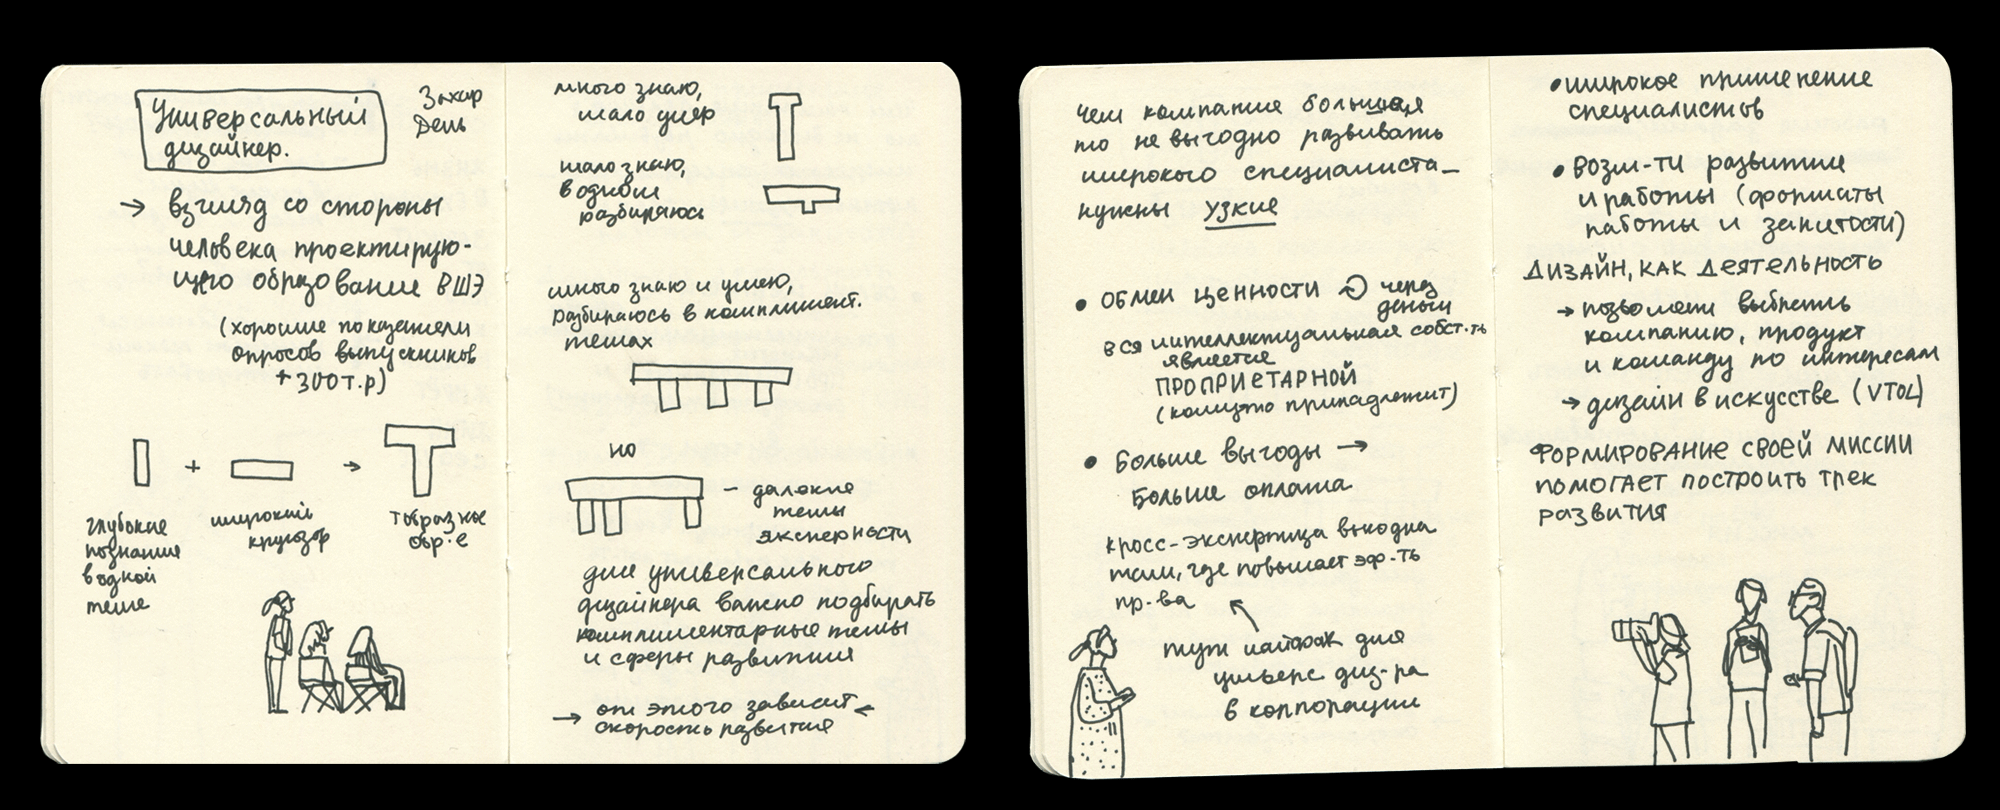 Универсальный
дизайнер.
Захар
День
→ взгляд со стороны
человека проектирую-
щего образование ВШЭ
(хорошие показатели
опросов выпускников
+ 300 т.р)
+ →
глубокие
познания
в одной
теме
широкий
кругозор
Тобразное
обр-е
много знаю,
мало умею
мало знаю,
в одной
разбираюсь
много знаю и умею,
разбираюсь в комплимент.
темах
но
– далекие
темы
экспертности
для универсального
дизайнера важно подбирать
комплиментарные темы
и сферы развития
→ от этого зависит ←
скорость развития
чем компания большая
то не выгодно развивать
широкого специалиста_
нужны узкие
• ОБМЕН ЦЕННОСТИ через
деньги
вся интеллектуальная собст-ть
является
ПРОПРИЕТАРНОЙ
(комуто принадлежит)
• Больше выгоды →
Больше оплата
кросс-экспертиза выгодна
там, где повышает эф-ть
пр-ва
тут лайфхак для
универс диз-ра
в корпорации
• широкое применение
специалистов
• возм-ти развития
и работы (форматы
работы и занятости)
ДИЗАЙН, КАК ДЕЯТЕЛЬНОСТЬ
→ позволяет выбрать
компанию, продукт
и команду по интересам
→ дизайн в искусстве (VTOL)
ФОРМИРОВАНИЕ СВОЕЙ МИССИИ
ПОМОГАЕТ ПОСТРОИТЬ ТРЕК
РАЗВИТИЯ